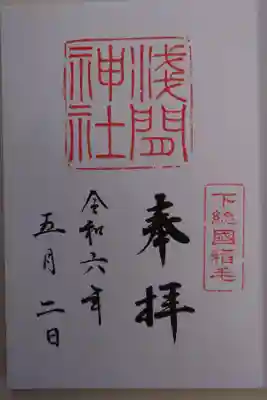 下総國稲毛
奉拝
浅間
神社
令和六年
五月二日